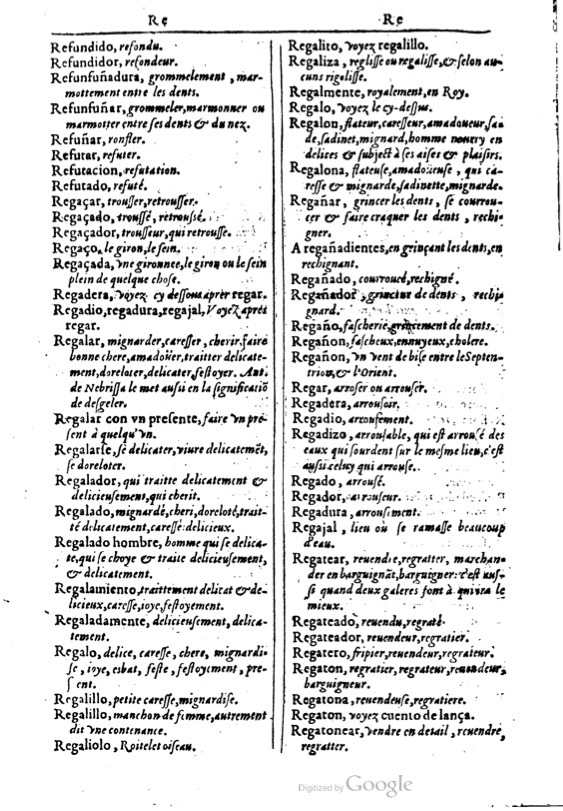 Re
Refundido, refondu.
Refundidor, refondeur.
Refunfuñadura, grommelement, mar-
mottement entre les dents.
Refunfuñar, grommeler, marmonner ou
marmotter entre ses dents & du nez.
Refuñar, ronfler.
Refutar, refuter.
Refutacion, refutation.
Refutado, refuté.
Regaçar, trousser, retrousser.
Regaçado, troussé, retroussé.
Regaçador, trousseur, qui retrousse.
Regaço, le giron, le sein.
Regaçada, vne gironnee, le giron ou le sein
plein de quelque chose.
Regadera, voyez cy dessous apres regar.
Regadio, regadura, regajal, Voyez apres
regar.
Regalar, mignarder, caresser, cherir, faire
bonne chere, amadoüer, traitter delicate-
ment, doreloter, delicater, festoyer. Ant.
de Nebrissa le met aussi en la significatiõ
de desgeler.
Regalar con vn presente, faire vn pre-
sent à quelqu'vn.
Regalarse, se delicater, viure delicatemẽt,
se doreloter.
Regalador, qui traitte delicatement &
delicieusement, qui cherit.
Regalado, mignardé, cheri, doreloté, trait-
té delicatement, caressé: delicieux.
Regalado hombre, homme qui se delica-
te, qui se choye & traite delicieusement,
& delicatement.
Regalamiento, traittement delicat & de-
licieux, caresse, ioye, festoyement.
Regaladamente, delicieusement, delica-
tement.
Regalo, delice, caresse, chere, mignardi-
se, ioye, esbat, feste, festoyement, pre-
sent.
Regalillo, petite caresse, mignardise.
Regalillo, manchon de femme, autrement
dit vne contenance.
Regaliolo, Roitelet oiseau.
Re
Regalito, voyez regalillo.
Regaliza, reglisse ou regalisse, & selon au-
cuns rigolisse.
Regalmente, royalement, en Roy.
Regalo, voyez le cy-dessus.
Regalon, flateur, caresseur, amadoueur, sa-
de, sadinet, mignard, homme nourry en
delices & subject à ses aises & plaisirs.
Regalona, flateuse, amadoüeuse, qui ca-
resse & mignarde, sadinette, mignarde.
Regañar, grincer les dents, se courrou-
cer & faire craquer les dents, rechi-
gner.
A regañadientes, en grinçant les dents, en
rechignant.
Regañado, courroucé, rechigné.
Regañador, grinceur de dents, rechi-
gnard.
Regaño, fascherie, grincement de dents.
Regañon, fascheux, ennuyeux, cholere.
Regañon, vn vent de bise entre le Septen-
trion, & l'Orient.
Regar, arroser ou arrouser.
Regadera, arrousoir.
Regadio, arrousement.
Regadizo, arrousable, qui est arrousé des
eaux qui sourdent sur le mesme lieu, c'est
aussi celuy qui arrouse.
Regado, arrousé.
Regador, arrouseur.
Regadura, arrousement.
Regajal, lieu où se ramasse beaucoup
d'eau.
Regatear, reuendre, regratter, marchan-
der en barguignãt, barguigner: c'est aus-
si quand deux galeres font à qui ira le
mieux.
Regateado, reuendu, regraté.
Regateador, reuendeur, regratier.
Regatero, fripier, reuendeur, regrateur.
Regaton, regratier, regrateur, reuendeur,
barguigneur.
Regatona, reuendeuse, regratiere.
Regaton, voyez cuento de lança.
Regatonear, vendre en detail, reuendre,
regratter.
Digitized by Google